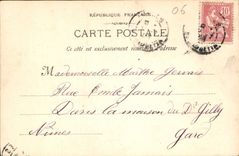 06
RÉPUBLIQUE FRANÇAISE
CARTE POSTALE
Ce côté est exclusivement réservé à l'adresse
Mademoiselle Marthe Gervais
Rue Emile Jamais
Dans la maison du Dr Gilly
Nîmes Gard